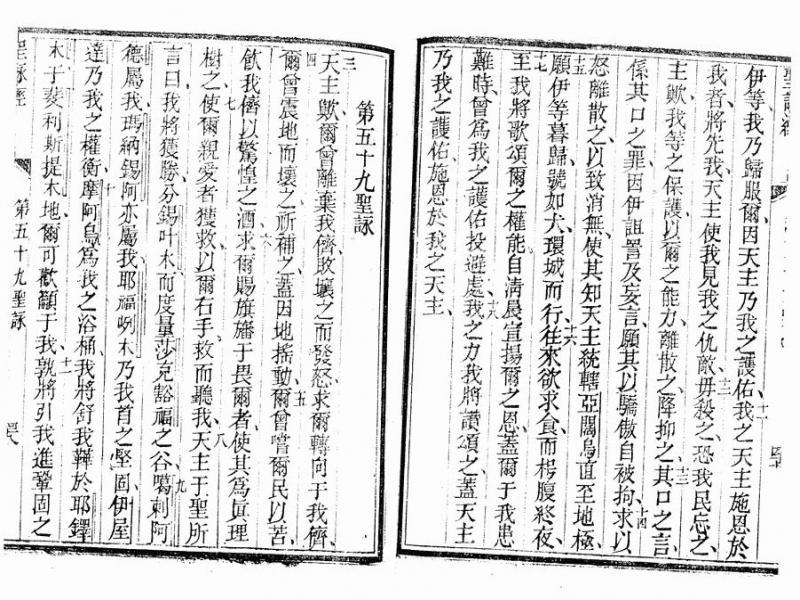 伊等、我乃歸服爾、因天主乃我之護佑、我之天主、施恩於
我者、將先我、天主使我見我之仇敵、十二毋殺之、恐我民忘之、
主歟、我等之保護、以爾之能力、離散之、降抑之、十三其口之言、
係其口之罪、因伊詛詈及妄言、願其以驕傲自被拘、十四求以
怒離散之、以致消無、使其知天主統轄亞闊烏、直至地極、
十五願伊等暮歸、號如犬、環城而行、十六往來欲求食、而枵腹終夜、
十七至我將歌頌爾之權能、自清晨宣揚爾之恩、蓋爾于我患
難時、曾爲我之護佑、投避處、十八我之力、我將讚頌之、蓋天主
乃我之護佑、施恩於我之天主、
第五十九聖詠
三天主歟、爾曾離棄我儕、敗壞之而發怒、求爾轉向于我儕、
四爾曾震地而壞之、祈補之、蓋因地搖動、五爾曾嘗爾民以苦、
飲我儕以驚惶之酒、六求爾賜旗旛于畏爾者、使其爲眞理
樹之、七使爾親愛者獲救、以爾右手、救而聽我、八天主于聖所
言曰、我將獲勝、分錫叶木、而度量莎克豁福之谷、九噶剌阿
德屬我、瑪納錫阿亦屬我、耶福咧木乃我首之堅固、伊屋
達乃我之權衡、十摩阿烏爲我之浴桶、我將舒我鞾於耶鐸
木、于斐利斯提木地、爾可歡籲于我、十一孰將引我進鞏固之
聖詠經
第五十九聖詠